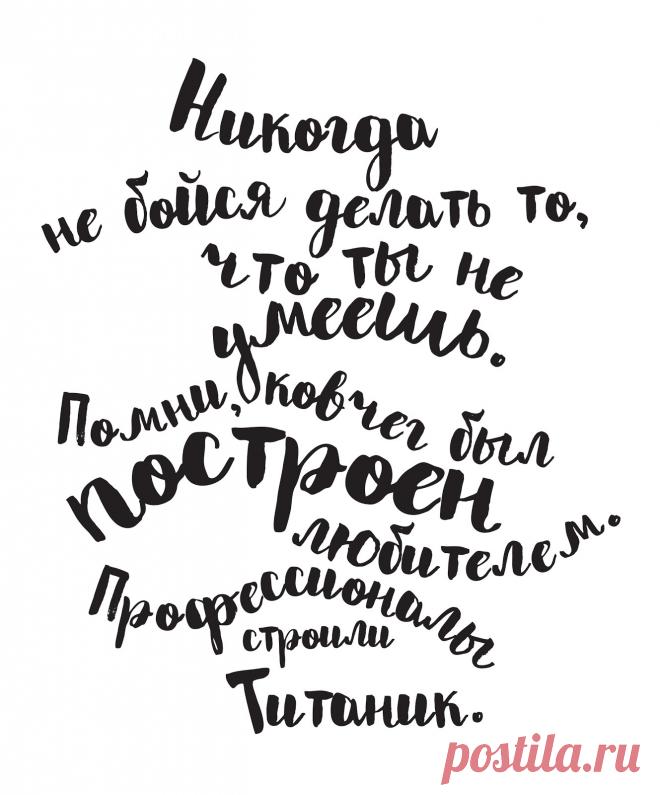 Никогда
не бойся делать то,
что ты не
умеешь.
Помни, ковчег был
построен
любителем.
Профессионалы
строили
Титаник.
postila.ru